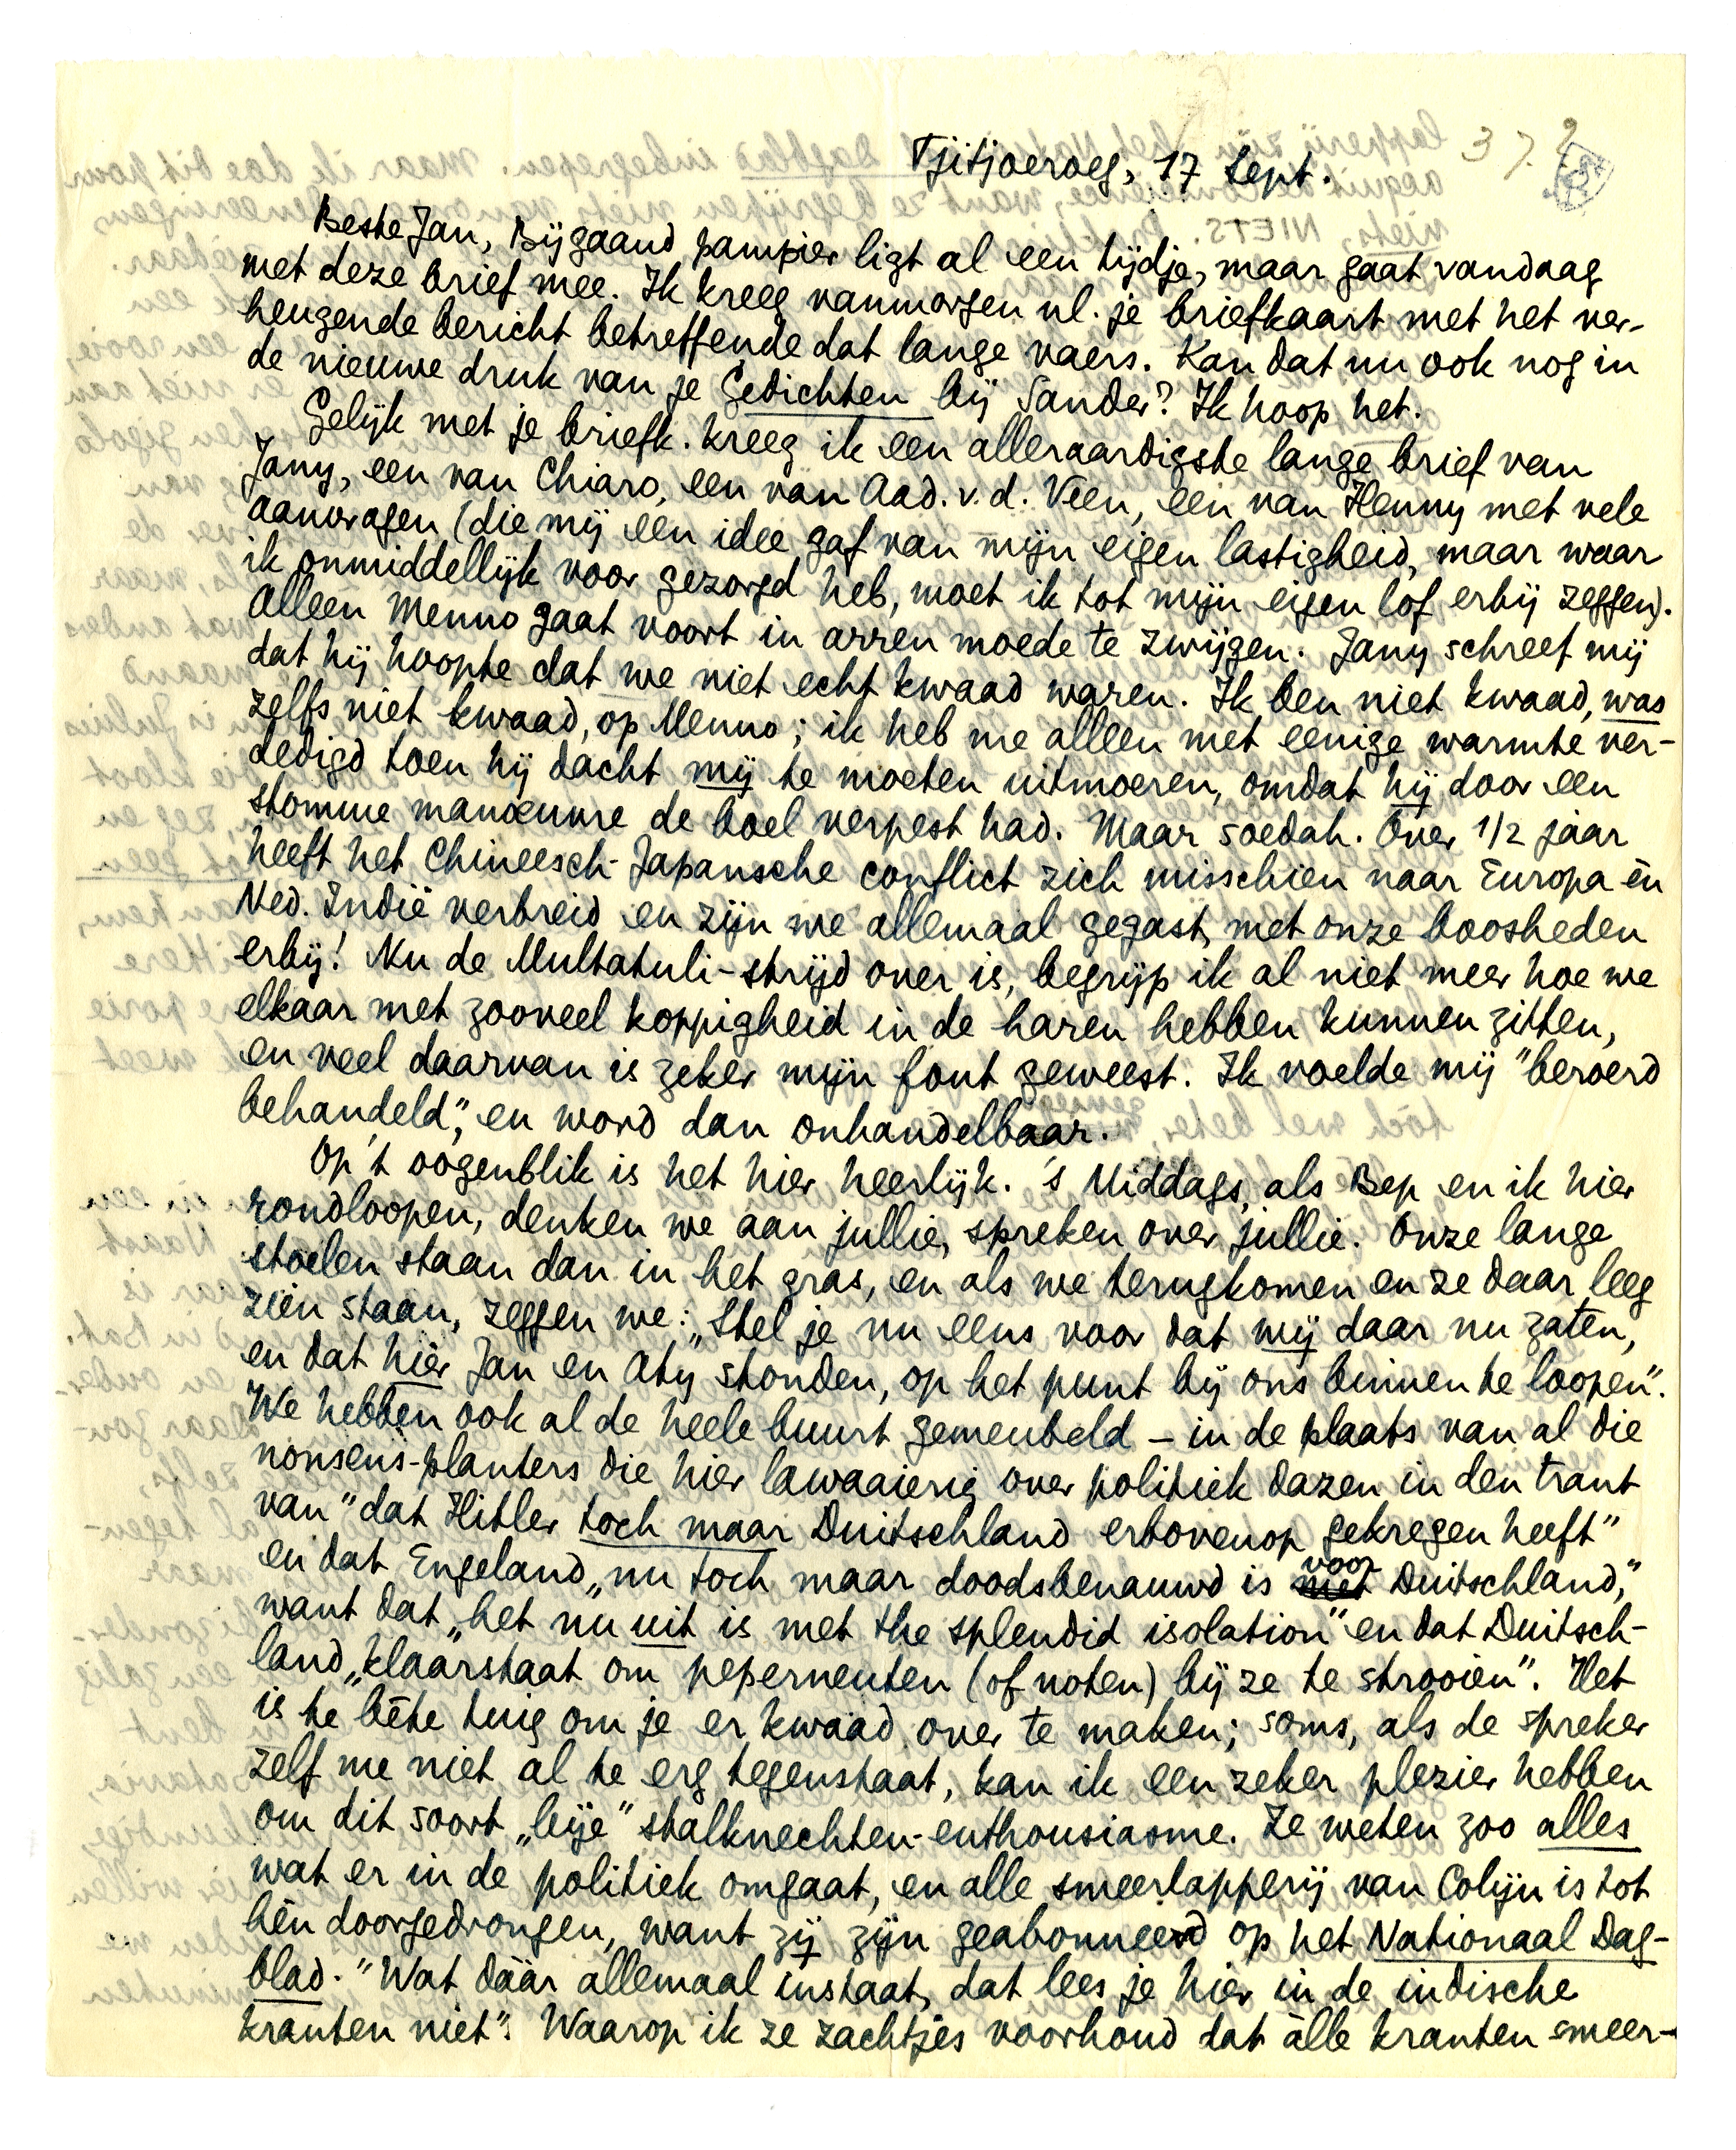 37.?
Tjitjoeroeg, 17 Sept.
Beste Jan, Bijgaand pampier ligt al een tijdje, maar gaat vandaag
met deze brief mee. Ik kreeg vanmorgen nl. je briefkaart met het ver-
heugende bericht betreffende dat lange vaers. Kan dat nu ook nog in
de nieuwe druk van je Gedichten bij Sander? Ik hoop het.
Gelijk met je briefk. kreeg ik een alleraardigste lange brief van
Jany, een van Chiaro, een van Aad. v. d. Veen, een van Henny met vele
aanvragen (die mij een idee gaf van mijn eigen lastigheid, maar waar
ik onmiddellijk voor gezorgd heb, moet ik tot mijn eigen lof erbij zeggen).
Alleen Menno gaat voort in arren moede te zwijgen. Jany schreef mij
dat hij hoopte dat we niet echt kwaad waren. Ik ben niet kwaad, was
zelfs niet kwaad, op Menno; ik heb me alleen met eenige warmte ver-
dedigd toen hij dacht mij te moeten uitmoeren, omdat hij door een
stomme manoeuvre de boel verpest had. Maar soedah. Over 1/2 jaar
heeft het Chineesch-Japansche conflict zich misschien naar Europa èn
Ned. Indië verbreid en zijn we allemaal gegast, met onze boosheden
erbij! Nu de Multatuli-strijd over is, begrijp ik al niet meer hoe we
elkaar met zooveel koppigheid in de haren hebben kunnen zitten,
en veel daarvan is zeker mijn fout geweest. Ik voelde mij "beroerd
behandeld", en word dan onhandelbaar.
Op 't oogenblik is het hier heerlijk. 's Middags, als Bep en ik hier
rondloopen, denken we aan jullie, spreken over jullie. Onze lange
stoelen staan dan in het gras, en als we terugkomen en ze daar leeg
zien staan, zeggen we: „Stel je nu eens voor dat wij daar nu zaten,
en dat hier Jan en Aty stonden, op het punt bij ons binnen te loopen".
We hebben ook al de heele buurt gemeubeld – in de plaats van al die
nonsens-planters die hier lawaaierig over politiek dazen in den trant
van "dat Hitler toch maar Duitschland erbovenop gekregen heeft"
en dat Engeland „nu toch maar doodsbenauwd is met voor Duitschland,"
want dat „het nu uit is met the splendid isolation" en dat Duitsch-
land „klaarstaat om peperneuten (of noten) bij ze te strooien". Het
is te bête tuig om je er kwaad over te maken; soms, als de spreker
zelf me niet al te erg tegenstaat, kan ik een zeker plezier hebben
om dit soort „bije" stalknechten-enthousiasme. Ze weten zoo alles
wat er in de politiek omgaat, en alle smeerlapperij van Colijn is tot
hèn doorgedrongen, want zij zijn geabonneerd op het Nationaal Dag-
blad. "Wat dáár allemaal instaat, dat lees je hier in de indische
kranten niet". Waarop ik ze zachtjes voorhoud dat àlle kranten smeer-